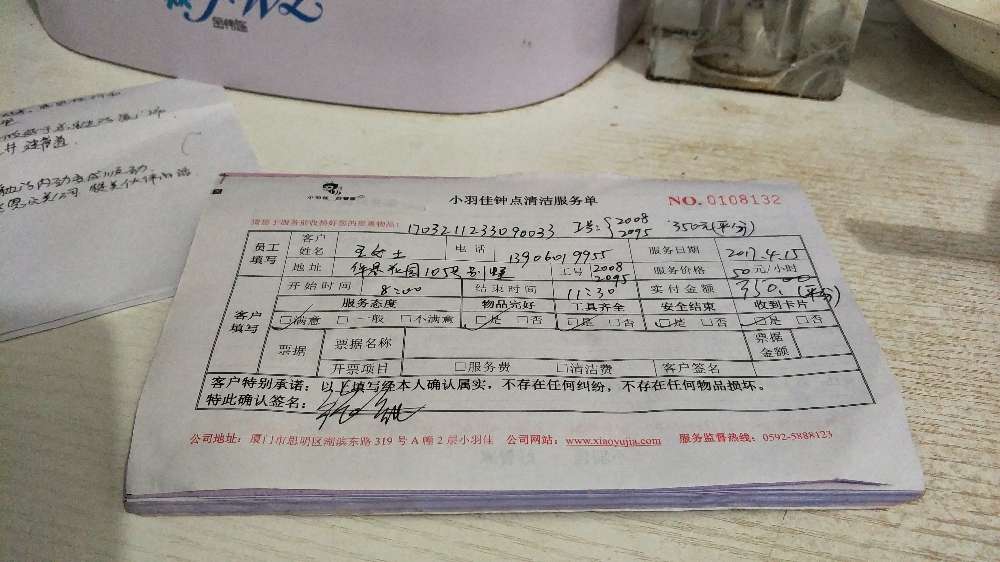 金伟莲
小羽佳 好管家
小羽佳钟点清洁服务单
NO.0108132
请您于服务前收拾好您的贵重物品!
1703211233090033 工号:{2008 350元(平分)
2095
员工填写 客户姓名 王女士 电话 13906019955 服务日期 2017.4.15
地址 花园105号别墅 工号 2008 2095 服务价格 50元/小时
开始时间 8:00 结束时间 11:30 实付金额 350.00(平分)
客户填写 服务态度 物品完好 工具齐全 安全结束 收到卡片
□满意 □一般 □不满意 □是 □否 □是 □否 □是 □否 □是 □否
票据 票据名称 票据金额
开票项目 □服务费 □清洁费 客户签名
客户特别承诺:以上填写经本人确认属实,不存在任何纠纷,不存在任何物品损坏。
特此确认签名:
公司地址:厦门市思明区湖滨东路319号A幢2层小羽佳 公司网站:www.xiaoyujia.com 服务监督热线:0592-5888123